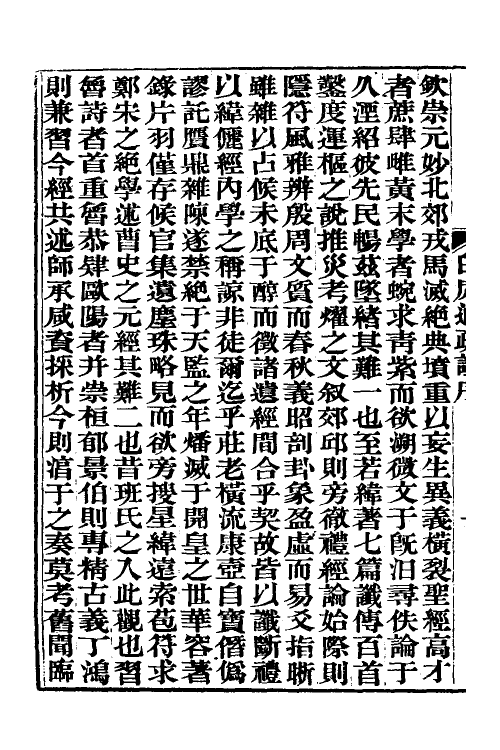 欽崇元妙北郊戎馬滅絕典墳重以妄生異義橫裂聖經高才
者蔗肆雌黃末學者蜿求青紫而欲溯微文于旣汨尋佚論于
久湮紹彼先民暢茲墜緒其難一也至若緯著七篇讖傳百首
鑿度運樞之說推災考燿之文叙郊邱則旁徵禮經論始際則
隱符風雅辨殷周文質而春秋義昭剖卦象盈虛而易爻指晰
雖雜以占候未底于醇而徵諸遺經間合乎契故皆以讖斷禮
以緯儷經內學之稱諒非徒爾迄乎莊老橫流康壺自寶僭僞
謬託贋鼎雜陳遂禁絕于天監之年燔滅于開皇之世華容著
錄片羽僅存候官集遺塵珠略見而欲旁搜星緯遠索苞符求
鄭宋之絕學述曹史之元經其難二也昔班氏之入此觀也習
魯詩者首重魯恭肄歐陽者幷崇桓郁景伯則專精古義丁鴻
則兼習今經共述師承咸資採析今則淯于之奏莫考舊聞臨